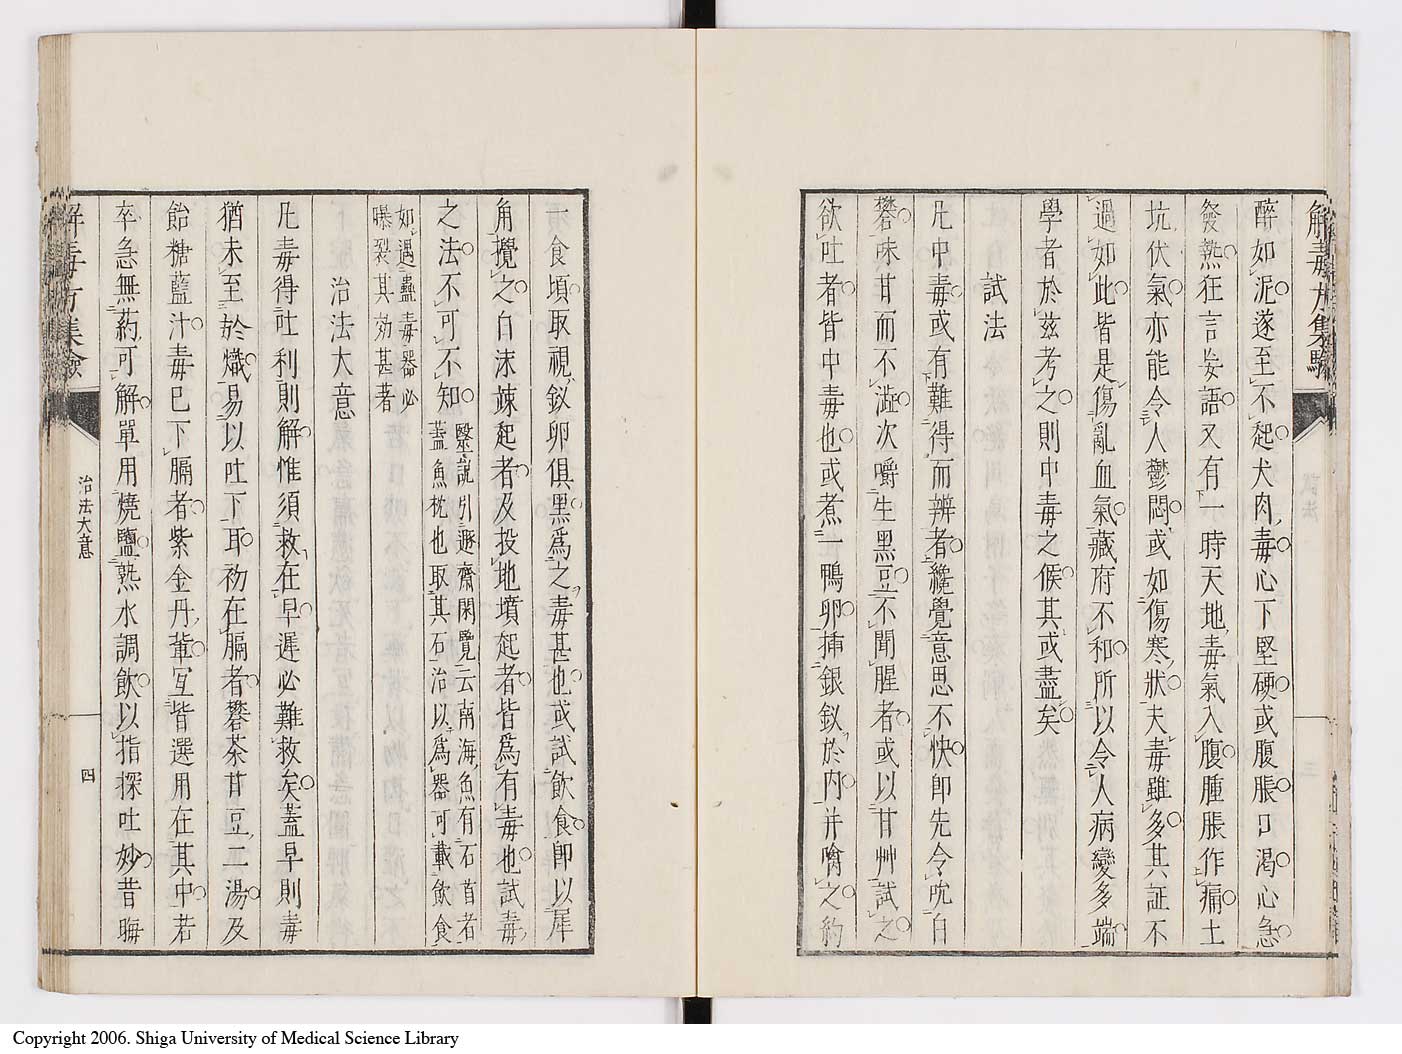 解毒方集驗
醉如泥遂至不起犬肉毒心下堅硬或腹脹口渴心急
發熱狂言妄語又有一時天地毒氣入腹腫脹作痛土
坑伏氣亦能令人鬱悶或如傷寒狀夫毒雖多其証不
過如此皆是傷亂血氣藏府不和所以令人病變多端
學者於茲考之則中毒之候其或盡矣
試法
凡中毒或有難得而辨者纔覺意思不快即先令吮白
礬味甘而不澁次嚼生黑豆不聞腥者或以甘艸試之
欲吐者皆中毒也或煮一鴨卵揷銀釵於内并噙之約
一食頃取視釵卵俱黑爲之毒甚也或試飲食即以犀
角攪之白沫竦起者及投地墳起者皆爲有毒也試毒
之法不可不知
鑿說引遯齋閑覽云南海魚有石首者
蓋魚枕也取其石治以爲器可載飲食
如遇蠱毒器必
曝裂其効甚著
治法大意
凡毒得吐利則解惟須救在早遲必難救矣蓋早則毒
猶未至於熾易以吐下耳初在膈者礬茶甘豆二湯及
飴糖藍汁毒已下膈者紫金丹軰互皆選用在其中若
卒急無葯可解單用燒鹽熟水調飲以指探吐妙昔晦
解毒方集驗
治法大意
四
Copyright 2006. Shiga University of Medical Science Library